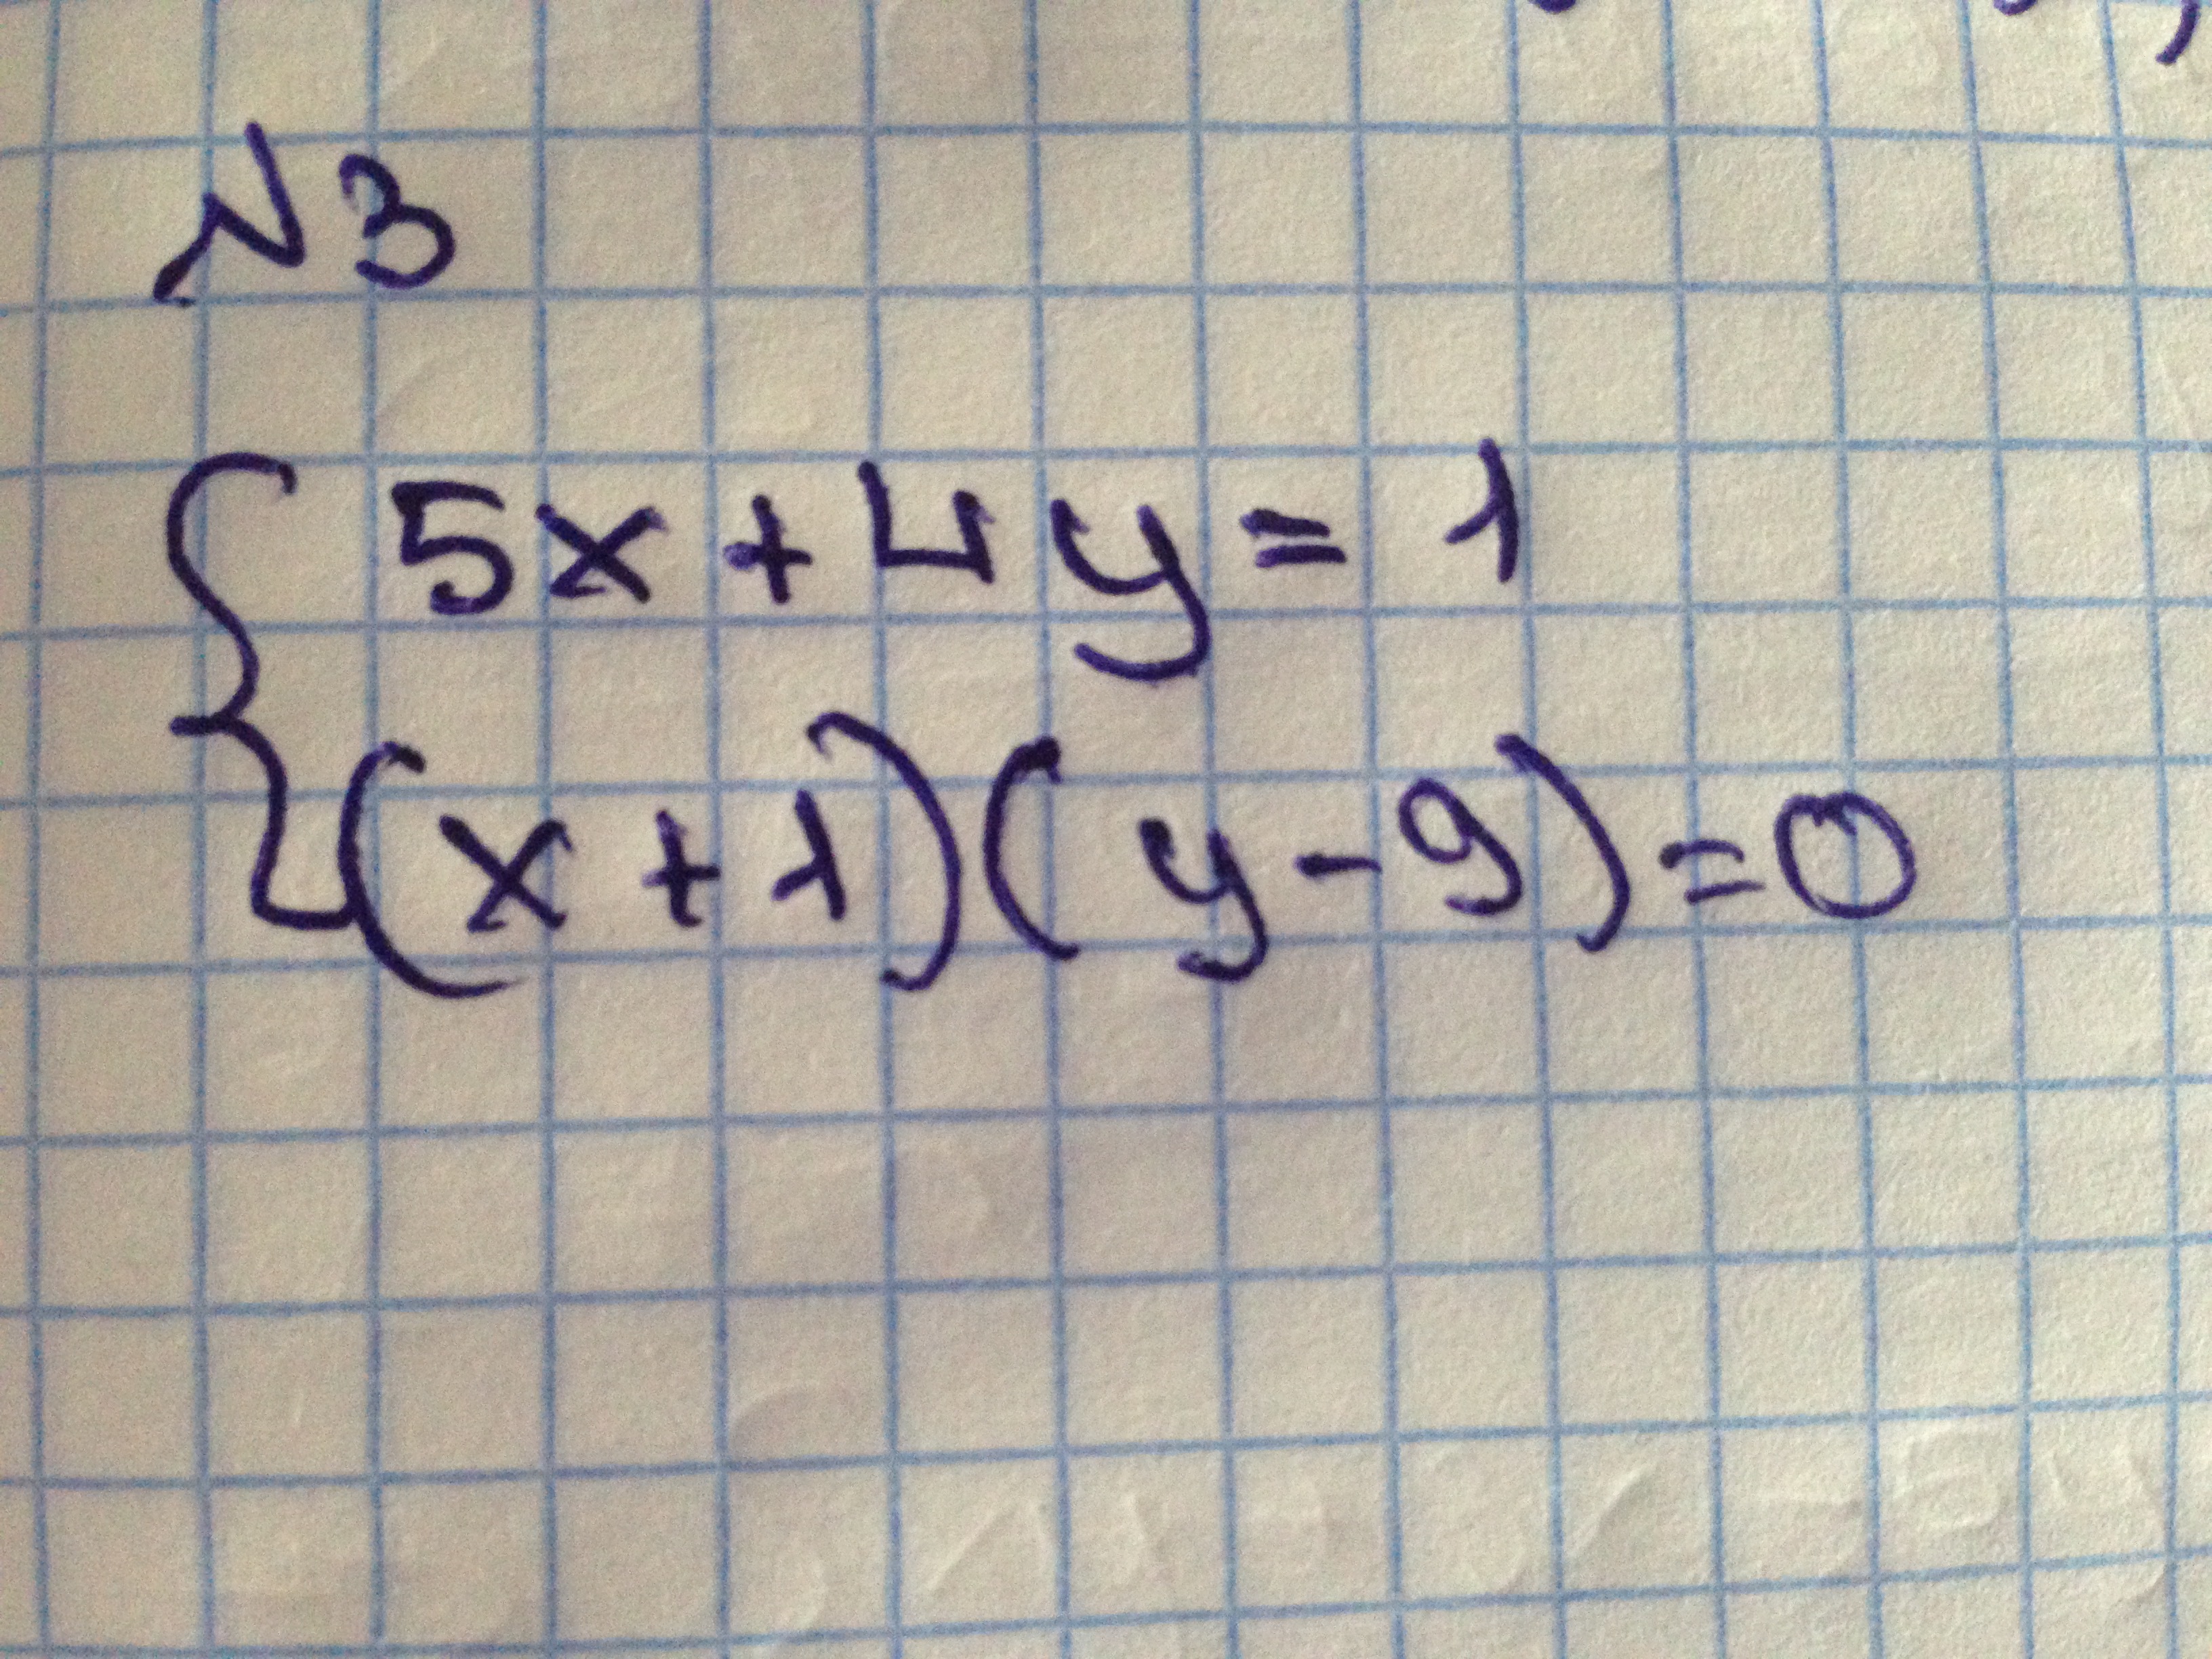 N3
5x + 4y = 1
(x + 1)(y - 9) = 0